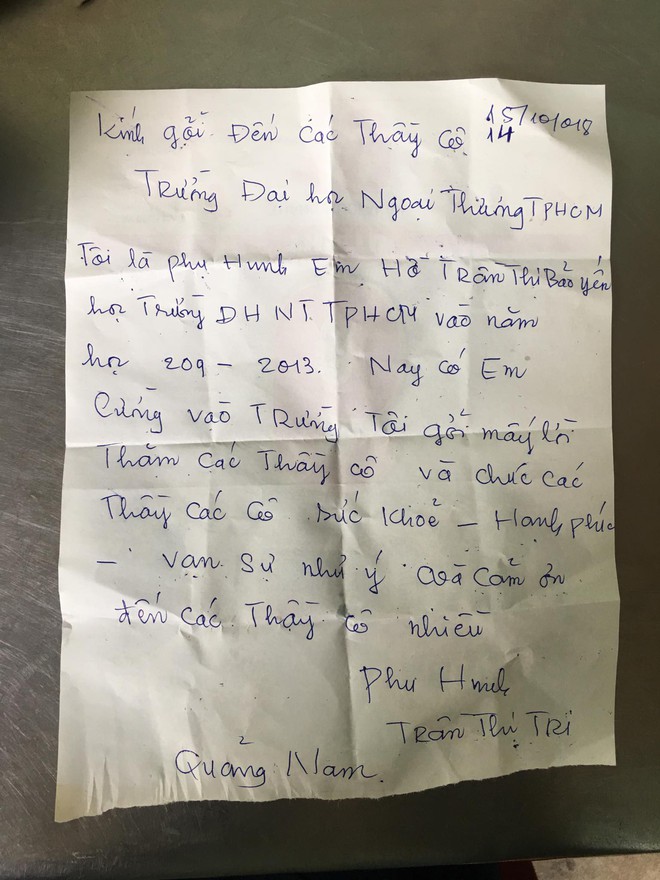 Kính gởi Đến các Thầy cô 15/10/018
14
Trường Đại học Ngoại Thương TPHCM
Tôi là phụ Hunh Em Hồ Trần Thị Bảo yến
học Trường ĐH NT. TPHCM vào năm
học 209 - 2013. Nay có Em
Cũng vào Trường Tôi gởi mấy lời
Thăm các Thầy cô và chúc các
Thầy các cô sức khoẻ - Hạnh phúc
- vạn sự như ý và cảm ơn
đến các Thầy cô nhiều
Phụ Hunh
Trần Thị Tri
Quảng Nam.